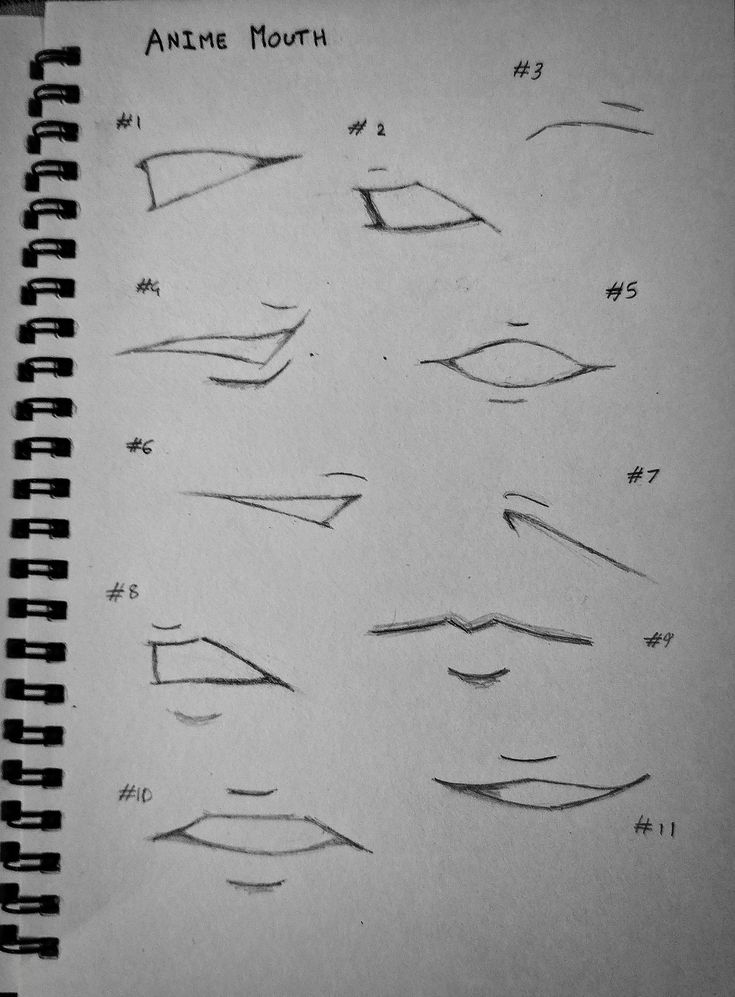 ANIME MOUTH
#3
#1
# 2
#4
#5
#6
#7
#8
#9
#10
#11